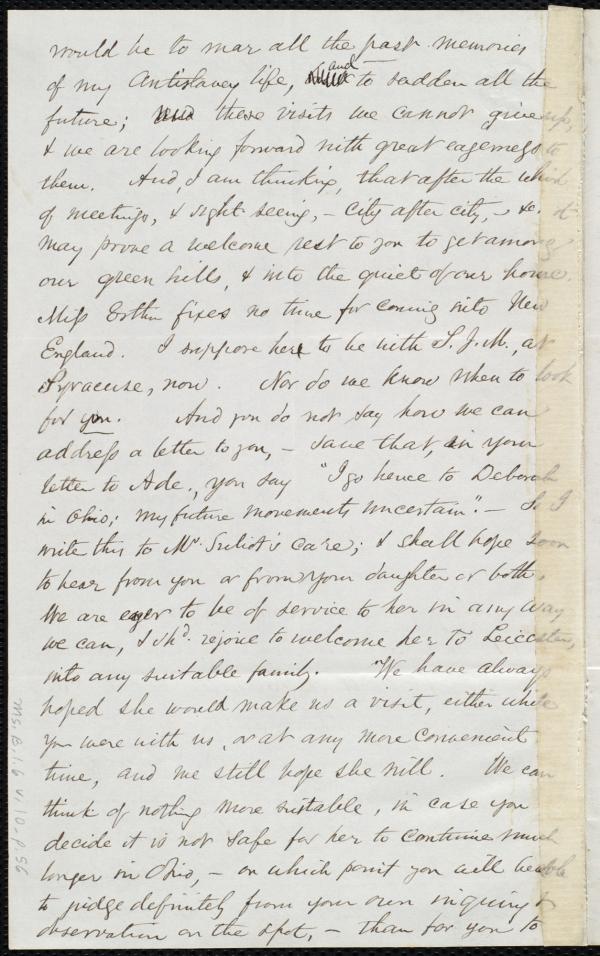 would be to mar all the past memories
of my Antislavery life, and to sadden all the
future; these visits we cannot give up,
& we are looking forward with great eagerness to
them. And, I am thinking, that after the whirl
of meetings, & sight-seeing, – city after city, – &c. it
may prove a welcome rest to you to get among
our green hills, & into the quiet of our home.
Miss Estlin fixes no time for coming into New
England. I suppose her to be with S. J. M., at
Syracuse, now. Nor do we know when to look
for you. And you do not say how we can
address a letter to you, – save that, in your
letter to Ade., you say "I go hence to Deborah
in Ohio; my future movements uncertain." – So I
write this to Mr. Suliot's care; & shall hope soon
to hear from you or from your daughter or both.
We are eager to be of service to her in any way
we can, & shd. rejoice to welcome her to Leicester,
into any suitable family. We have always
hoped she would make us a visit, either while
you were with us, or at any more convenient
time, and we still hope she will. We can
think of nothing more suitable, in case you
decide it is not safe for her to continue much
longer in Ohio, – on which point you will be able
to judge definitely from your own inquiry &
observation on the spot, – than for you to
Ms. B.1.6 v.10-p.56